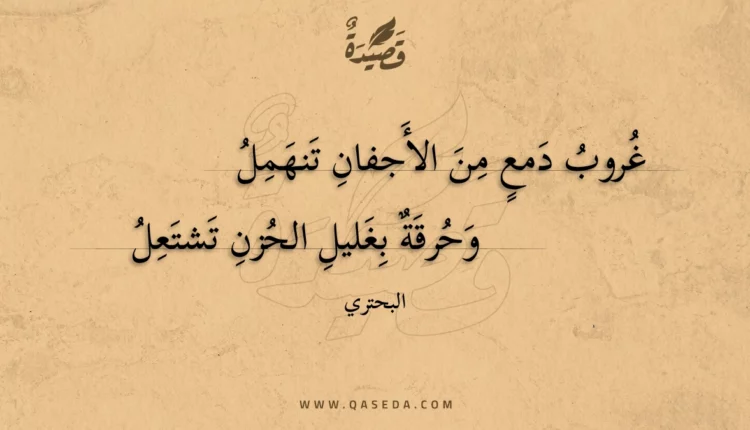 قَصِيْدَةٌ
غُروبُ دَمعٍ مِنَ الأَجفانِ تَنهَمِلُ
وَحُرقَةٌ بِغَليلِ الحُزنِ تَشتَعِلُ
البحتري
WWW.QASEDA.COM